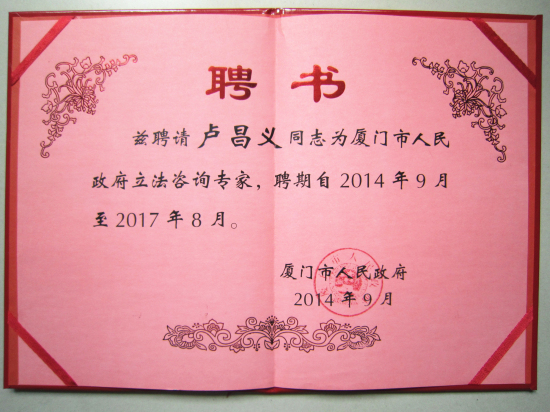 聘书
兹聘请卢昌义同志为厦门市人民
政府立法咨询专家，聘期自2014年9月
至2017年8月。
厦门市人民政府
2014年9月